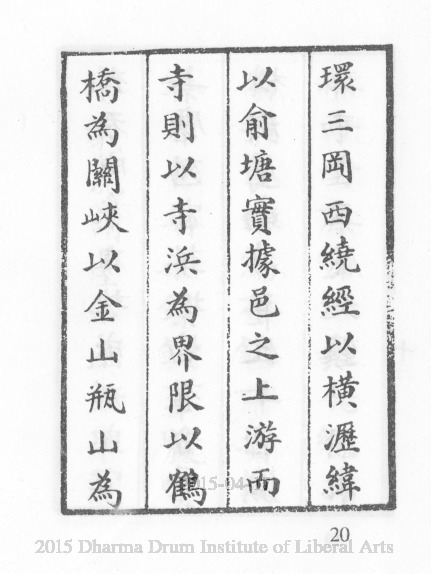 環三岡西繞經以橫瀝緯
以俞塘實據邑之上游而
寺則以寺浜為界限以鶴
橋為關峽以金山瓶山為
20
2015 Dharma Drum Institute of Liberal Arts